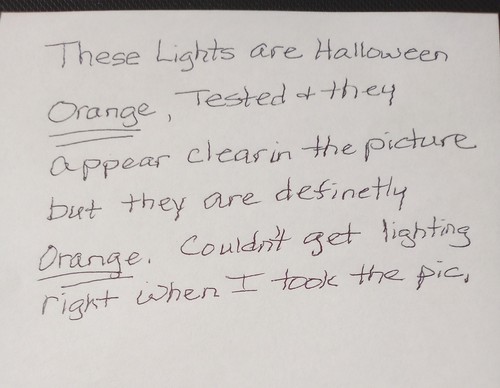 These Lights are Halloween
Orange, Tested & they
appear clear in the picture
but they are definetly
Orange. Couldn't get lighting
right when I took the pic.